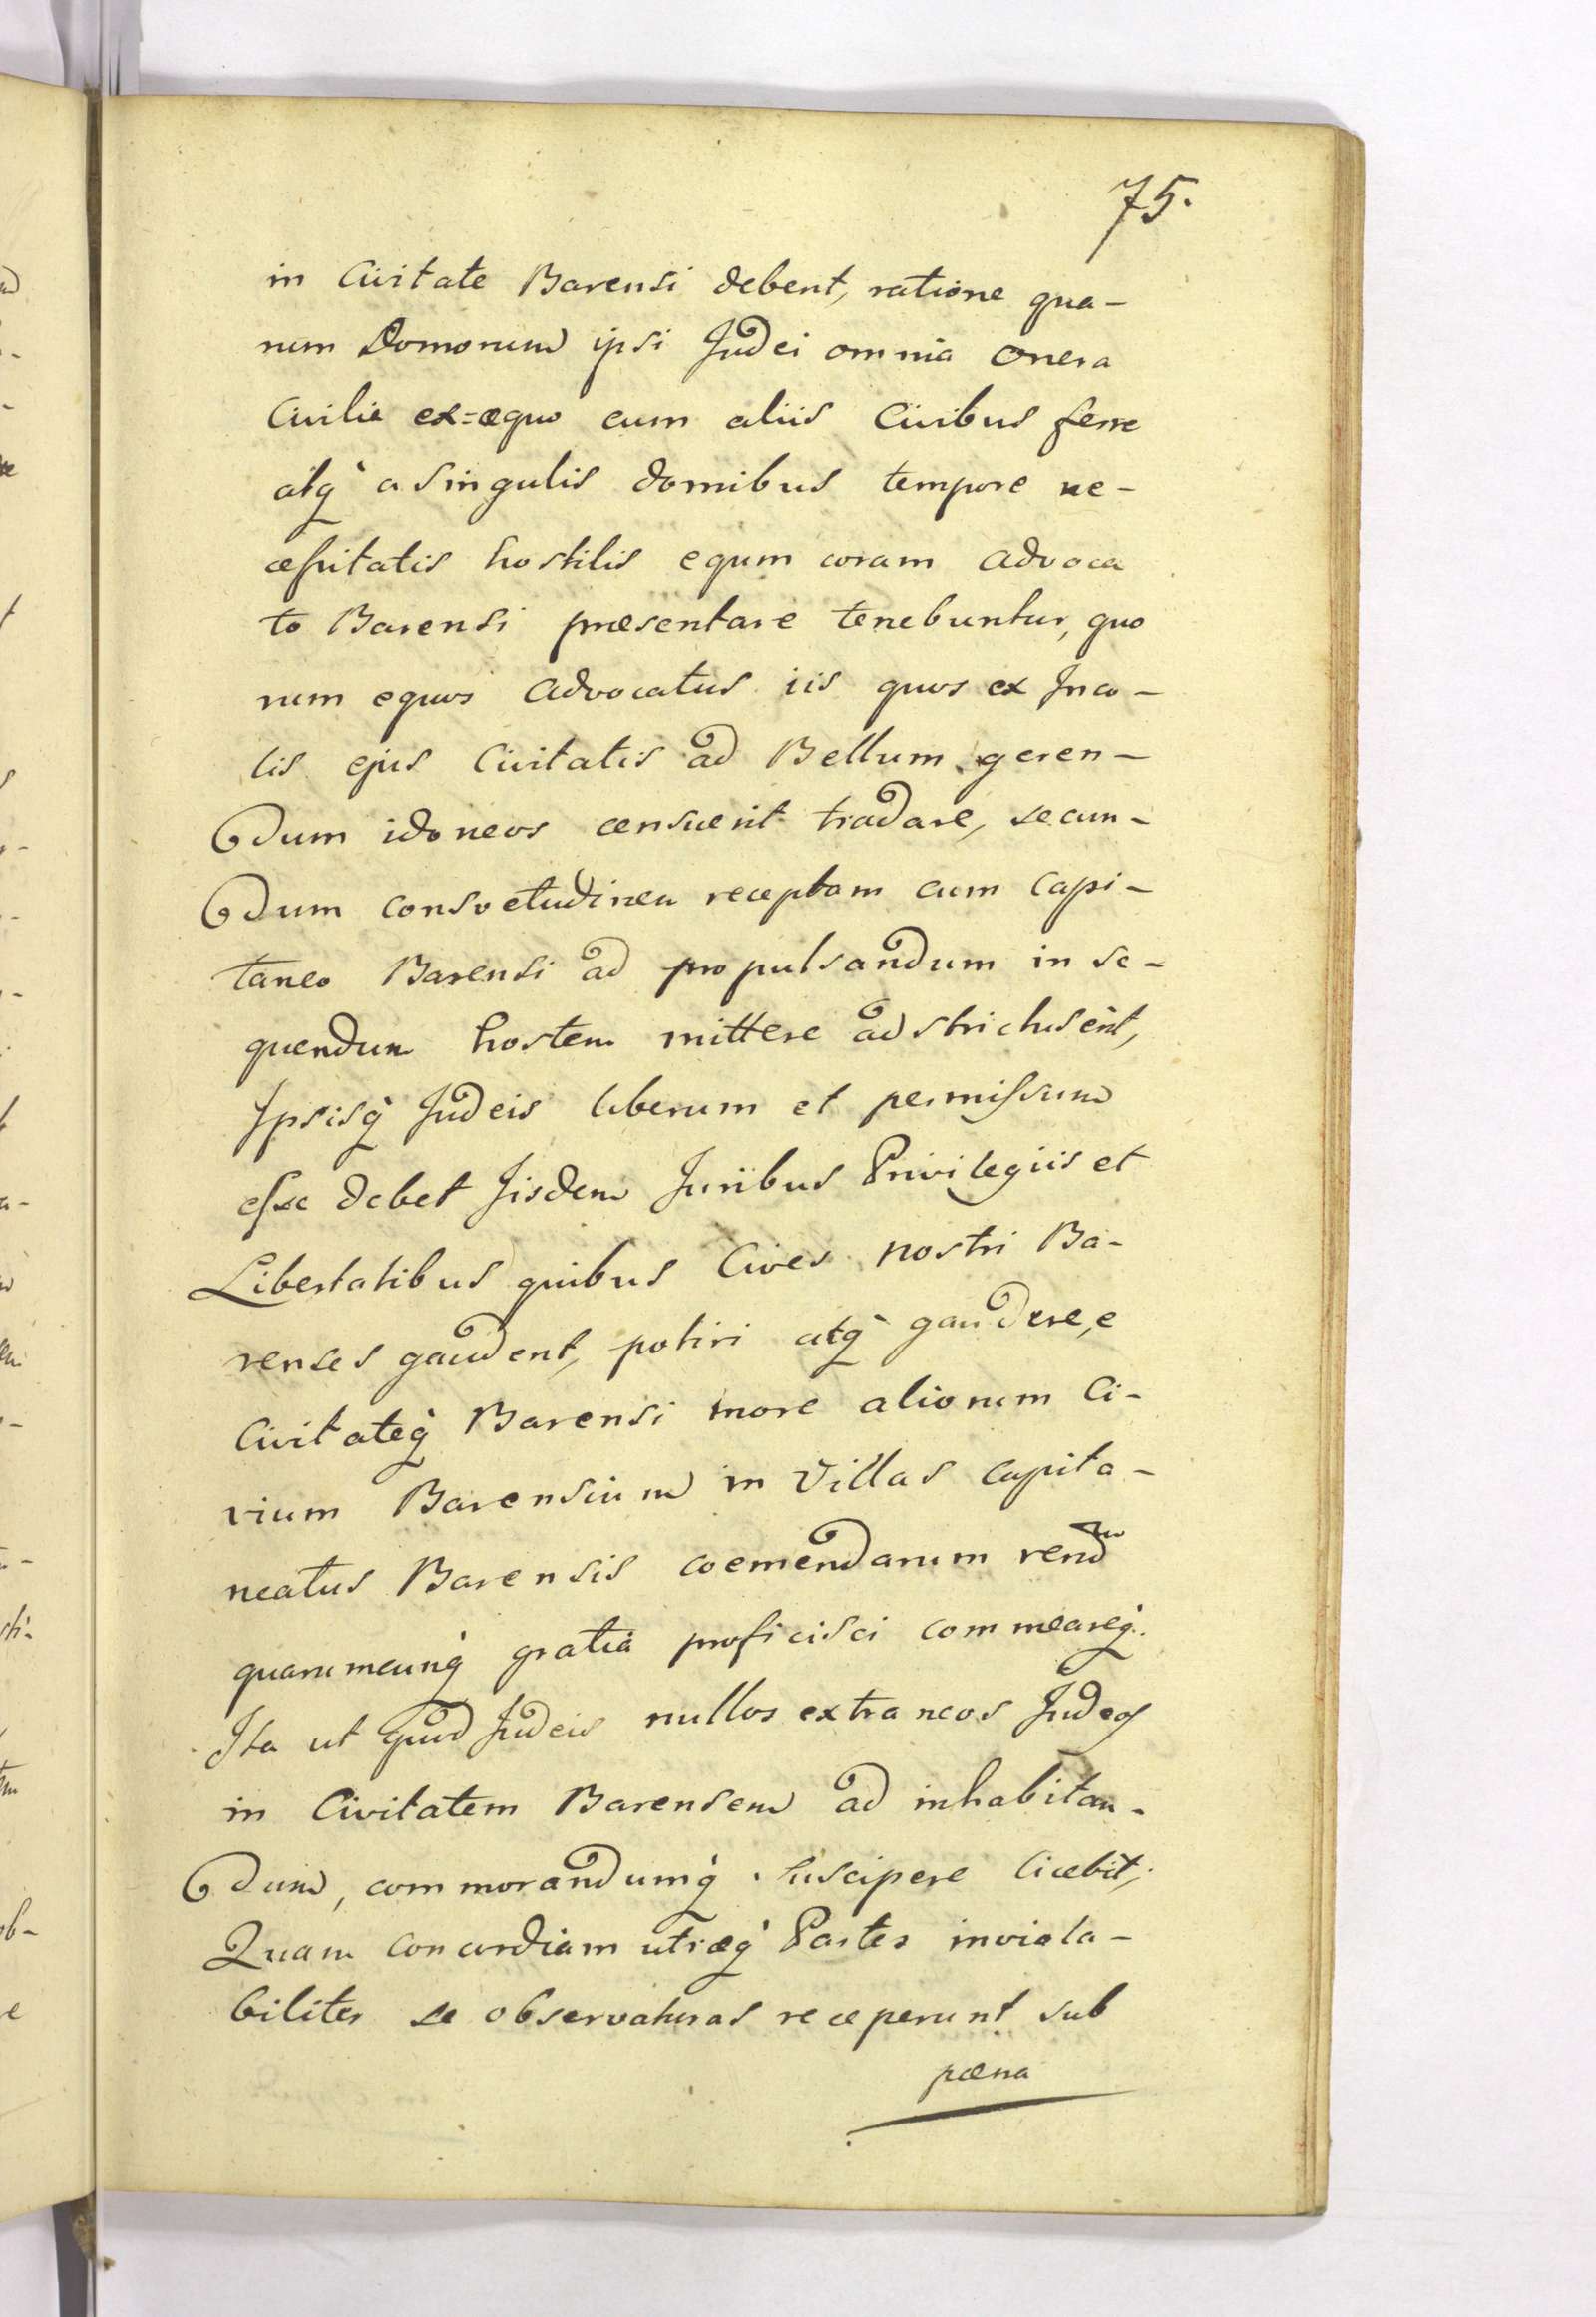 75.
in Civitate Barensi debent, ratione qua-
rum Domorum ipsi Judei omnia onera
Civilia ex=æquo cum aliis Civibus ferre
atq̀ a singulis domibus tempore ne-
cessitatis hostilis equum coram advoca
to Barensi præsentare tenebuntur, quo
rum equos Advocatus iis quos ex Inco-
lis ejus Civitatis ad Bellum geren-
dum idoneos censuerit tradare, secun-
dum consvetudinem receptam cum Capi-
taneo Barensi ad propulsandum inse-
quendum hostem mittere adstrictus erit,
Ipsisq̀ Judeis liberum et permissum
esse debet Iisdem Juribus Privilegiis et
Libertatibus quibus Cives nostri Ba-
renses gaudent, potiri atq̀ gaudere, e
Civitateq̀ Barensi more aliorum Ci-
vium Barensium in Villas capita-
neatus Barensis coemendarum rerum
quarumcunq̀ gratia proficisci commeareq̀.
Ita ut quod Judeis nullos extraneos Judeos
in Civitatem Barensem ad inhabitan-
dum, commorandumq̀ suscipere licebit;
Quam concordiam utræq̀ Partes inviola-
biliter se observaturas receperunt sub
pæna